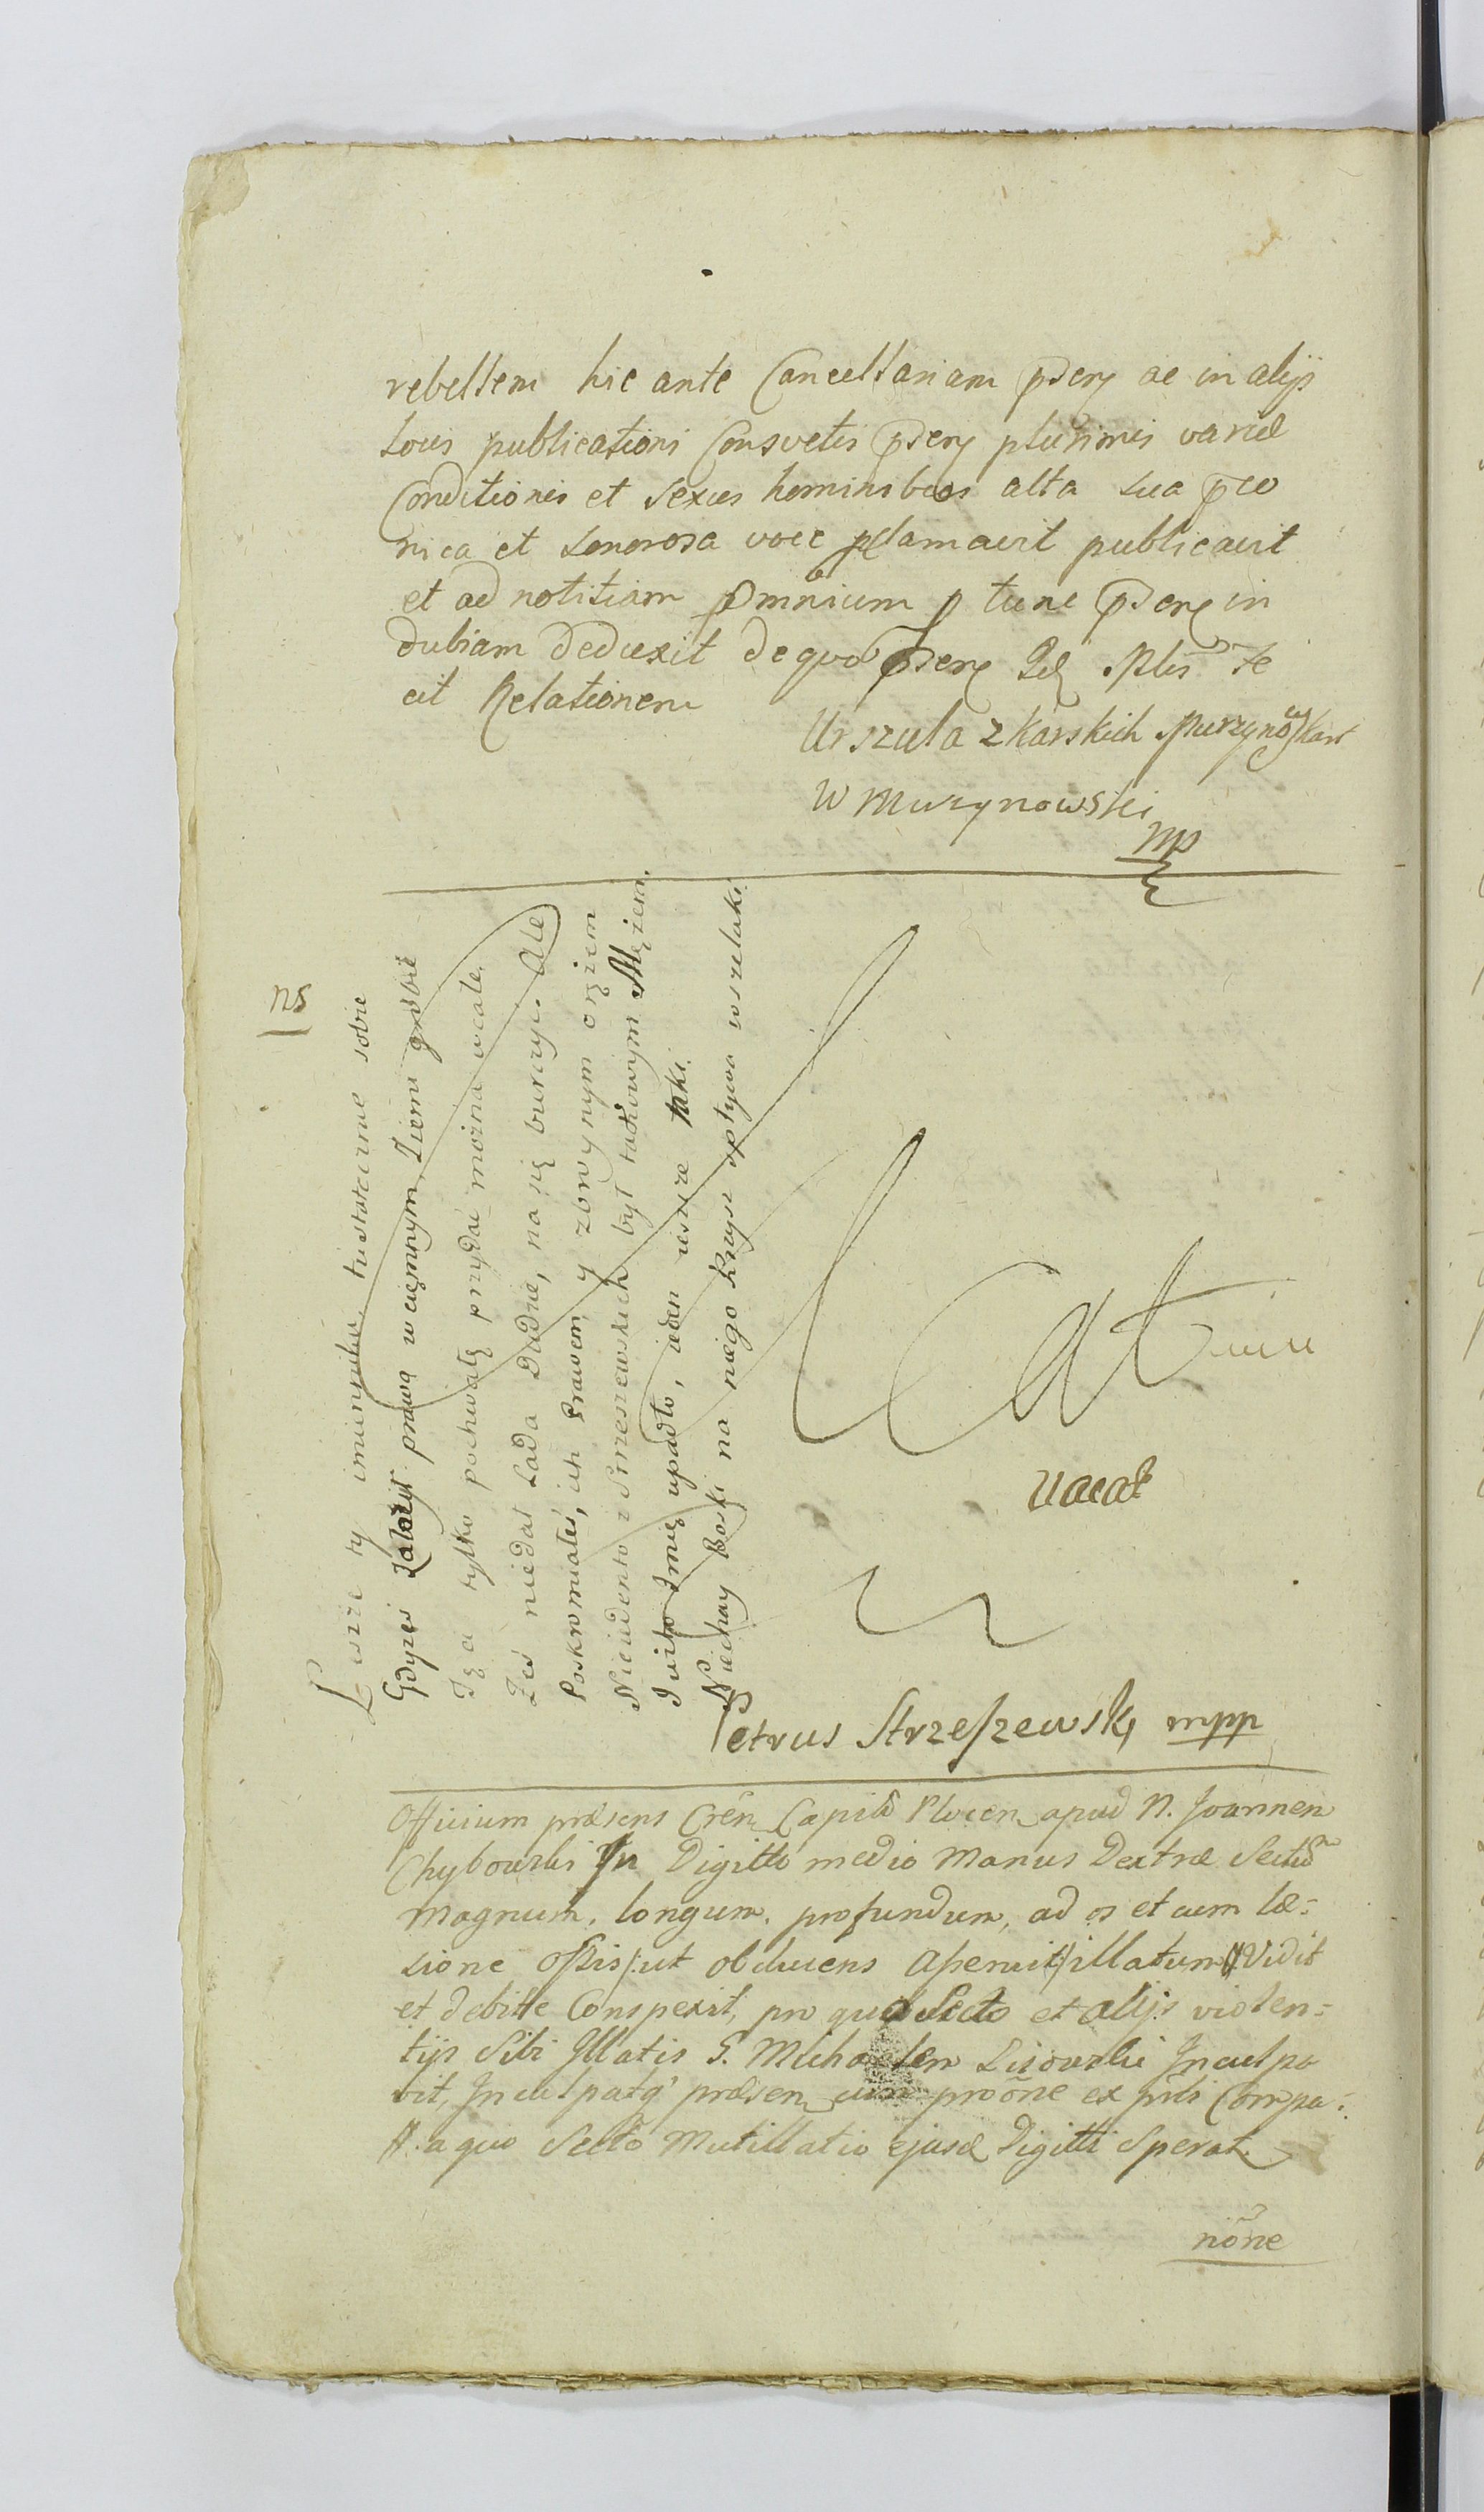 rebellem hic ante Cancellariam pdery ac in alijs
Locis publicationi Consvetis pdery plurimis variæ
Conditionis et sexus hominibus alta sua pco
nica et sonorosa voce pclamavit publicavit
et ad notitiam omnium p tunc pdery in
dubiam deduxit de quo pdery Idq Mtis fe
cit Relationem
Urszula z Karskich Murzynowska
W Murzynowski
mp
ns
Leżże ty
sobie
Gdyżeś Założył prawą w ciemnym Ziemi grobie
Tę ci tylko pochwałę przydać można wcale.
Żeś niedał Lada Dudne, na się burczyć. Ale
Poskromiałeś, ich Prawem, y zbroynym orężem
Nieiudento z Strzeszewskich był takowym Mężem.
Iuiho Imię upadło, ieden ieszcze taki.
Niechay Boski na niego Krzyż spływa wszelaki.
Vacat
Vacat
Petrus Strzeszewsky mpp
Officium præsens Cren Capitl Plocen apud N. Joannem
Chybowski In Digitto medio Manus Dextræ Sectū
Magnum, longum, profundum, ad os et cum læ=
sione ossis /:ut obducens Aperuit/ illatum Vidit
et debitte Conspexit, pro quo Secto et alijs violen=
tijs Sibi Illatis G. Michaelem Lisowski Inculpa
vit, Inculpatq præsen cum proone ex prts Compa:
R. a quo Secto Mutillatio ejusd Digitti Sperat.
nōne